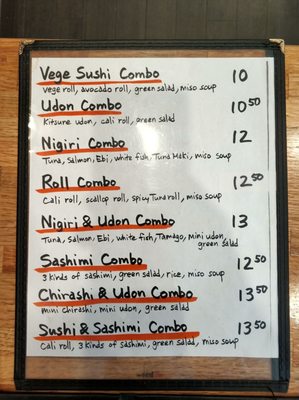 Vege Sushi Combo 10
vege roll, avocado roll, green salad, miso soup
Udon Combo 10⁵⁰
Kitsune udon, cali roll, green salad
Nigiri Combo 12
Tuna, Salmon, Ebi, white fish, Tuna Maki, miso soup
Roll Combo 12⁵⁰
Cali roll, scallop roll, Spicy Tuna roll, miso soup
Nigiri & Udon Combo 13
Tuna, Salmon, Ebi, white fish, Tamago, mini udon,
green salad
Sashimi Combo 12⁵⁰
3 kinds of sashimi, green salad, rice, miso soup
Chirashi & Udon Combo 13⁵⁰
mini chirashi, mini udon, green salad
Sushi & Sashimi Combo 13⁵⁰
Cali roll, 3 kinds of sashimi, green salad, miso soup